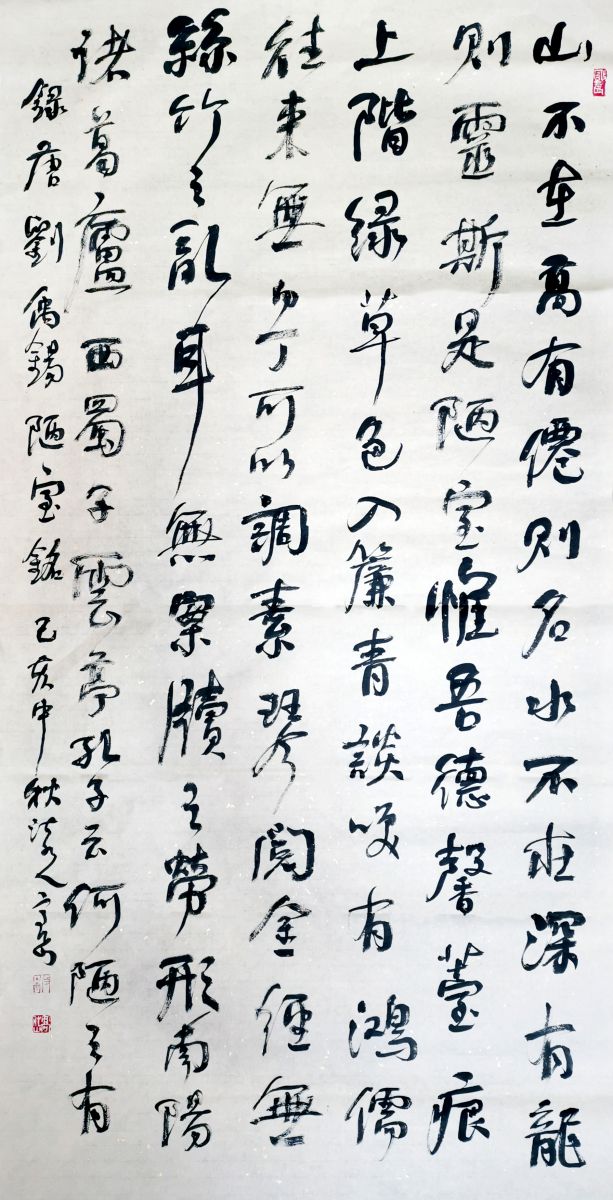 山不在高有僊則名水不在深有龍
則靈斯是陋室惟吾德馨薹痕
上階緑草色入簾青談咲有鴻儒
往來無白丁可以調素琴閱金經無
絲竹之亂耳無案牘之勞形南陽
諸葛廬西蜀子雲亭孔子云何陋之有
録唐劉禹錫陋室銘己亥中秋